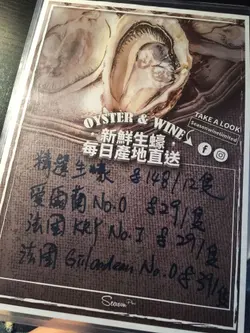 OYSTER & WINE
TAKE A LOOK!
Seasonwinelimited
新鮮生蠔
每日產地直送
精選生蠔 $148/12隻
愛爾蘭 No.0 $29/隻
法國 KRP No.1 $29/隻
法國 Gillardeau No.0 $39/隻
Season